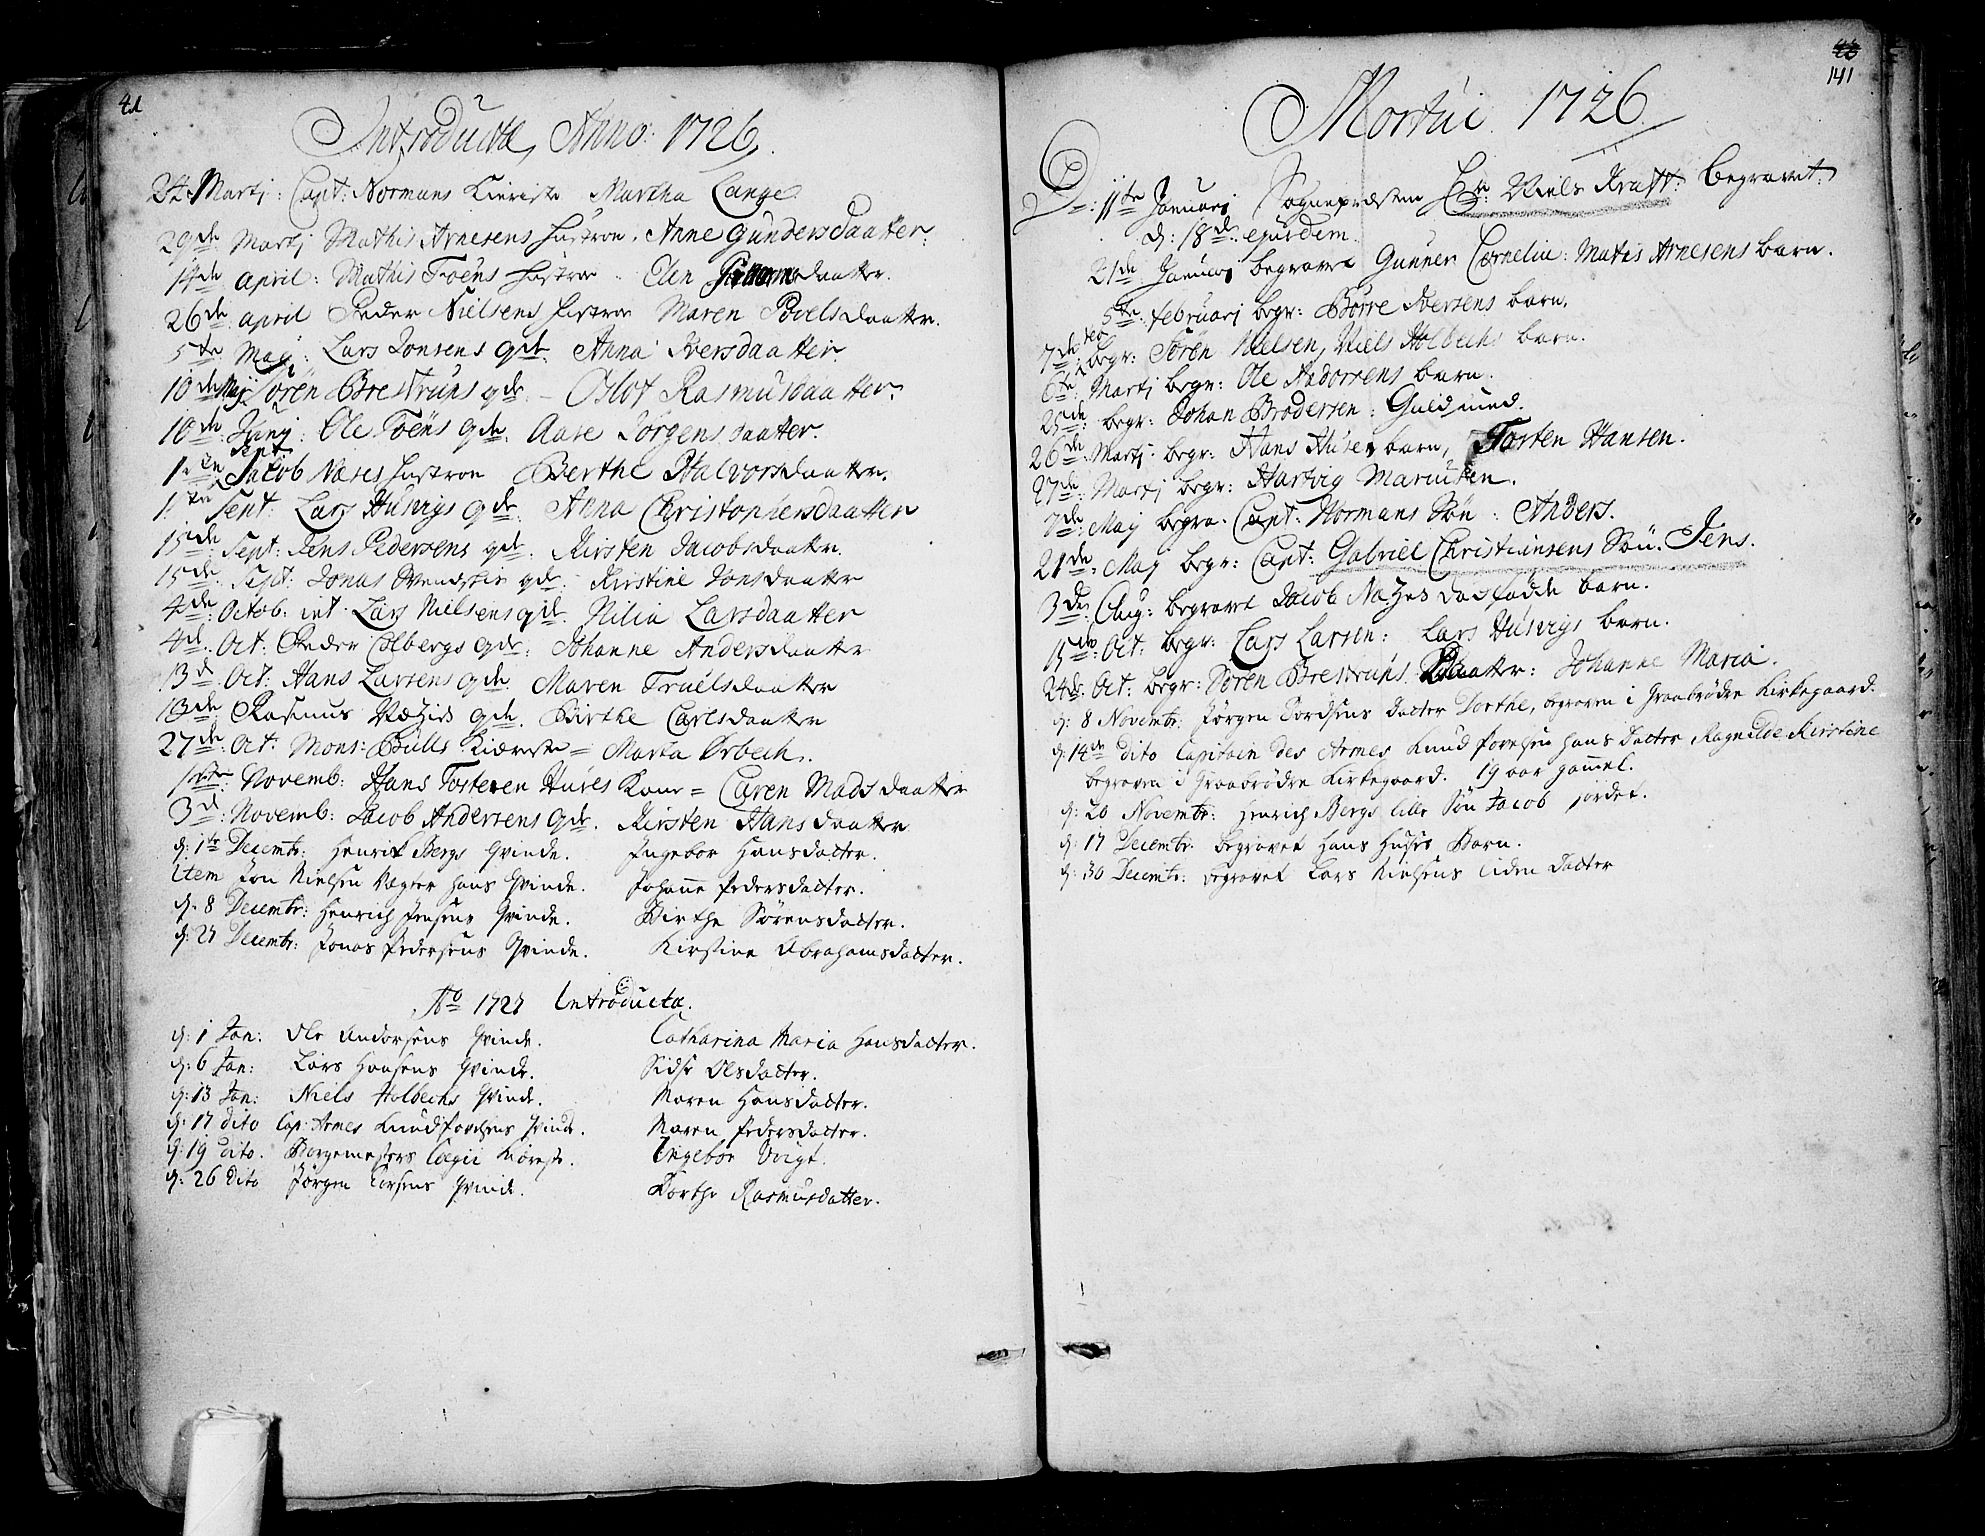 41
Introductæ, Anno: 1726,
24. Martj: Capt: Normans Kieriste Martha Lange
29de Martj Mathis Arnesens hustroe. Anne Gundersdaatter:
14de April: Mathis Foëns hustroe Elen daatter.
26de April Peder Nielsens hustroe Maren Povelsdaatter.
5te Maj: Lars Jonsens qde. Anna Iversdaatter
10de Maj: Sören Brestruns qde. – Oslot Rasmusdaatter.
10de Junj: Ole Foëns qde. Aase Jörgensdaatter.
1. Sept Jacob Næses hustroe Berthe Halvorsdaatter.
1te Sept: Lars Husvigs qde Anna Christophersdaatter
15de Sept: Jens Pedersens qde. Kirsten Jacobsdaatter.
15de Sept: Jonas qde. Kirstine Jonsdaatter
4de Octob: int. Lars Nielsens qde. Nilia Larsdaatter
4de Oct: Peder Colbergs qde: Johanne Andersdaatter
13d Oct: Hans Larsens qde. Maren Truelsdaatter
18de Rasmus qde. Birthe Carlsdaatter
27de Oct: Mons: Bulls Kiæreste = Marta Ørbech.
1ste Novemb: Hans Torstesen Huses Kone = Caren Madsdaatter
3d: Novemb: Jacob Andersens qde. Kirsten Hansdaatter
d: 1te Decembr: Henrik Bergs Qvinde. Ingebor Hansdatter.
Item Jon Nielsen Vægter hans Qvinde. Johane Pedersdatter.
d. 8 Decembr: Henrich Jensens Qvinde. Birthe Sørensdatter.
d: 27 Decembr: Jonas Pedersens Qvinde. Kirstine Abrahamsdatter.
Ao 1727 Introducta.
d: 1 Jan: Ole Andorsens Qvinde. Catharina Maria Hansdatter.
d: 6 Jan: Lars Hansens Qvinde. Sidse Olsdatter.
d: 13 Jan: Niels Holbechs Qvinde. Maren Hansdatter.
d: 17 dito Cap: Armes Knud Povelsens Qvinde. Maren Pedersdatter.
d: 19 dito. Borgemesters Coegii Kiereste. Ingebor Voigt.
d: 26 dito Jørgen Torsens Qvinde. Dorthe Rasmusdatter.
48
141
Mortui 1726
D: 11te Januarj Sognepresten Hr: Niels Kraft: begravit:
d: 18de ejusdem.
21de Januarj begravet Gunner Cornelia: Matis Arnesens barn.
5te februarj begr: Börre Iversens barn.
7de Feb begr: Sören Nielsen, Niels Holbechs barn.
6te Martj begr: Ole Andorsens barn.
25de: begr: Johan Brodersen: Guldsmed.
26de Martj begr: Hans Huses barn, Torsten Hansen.
27de: Martj begr: Hartvig Mariusen.
7de: Maj begra. Capt: Normans Sön: Anders.
21de. Maj begr: Capt: Gabriel Christiansens Sön. Jens.
3de: Aug: begravet Jacob Næzes dødfødde barn.
15de Oct: begr: Lars Larsen: Lars Husvigs barn.
24de Oct: begr: Sören Brestruns Daatter: Johanne Maria.
d: 8 Novembr: Jørgen Tordsens Datter Dorthe, begraven i Graabrødre Kirkegaard.
d: 14de dito Capitain des Armes Knud Povelsen hans Datter Ragnilde Kirstine
begraven i Graabrødre Kirkegaard. 19 aar gamel.
d: 20 Novembr: Henrich Bergs lille Søn Jacob jordet.
d: 17 Decembr. begravet Hans Huses Barn.
d: 30 Decembr: begravet Lars Nielsens liden Datter